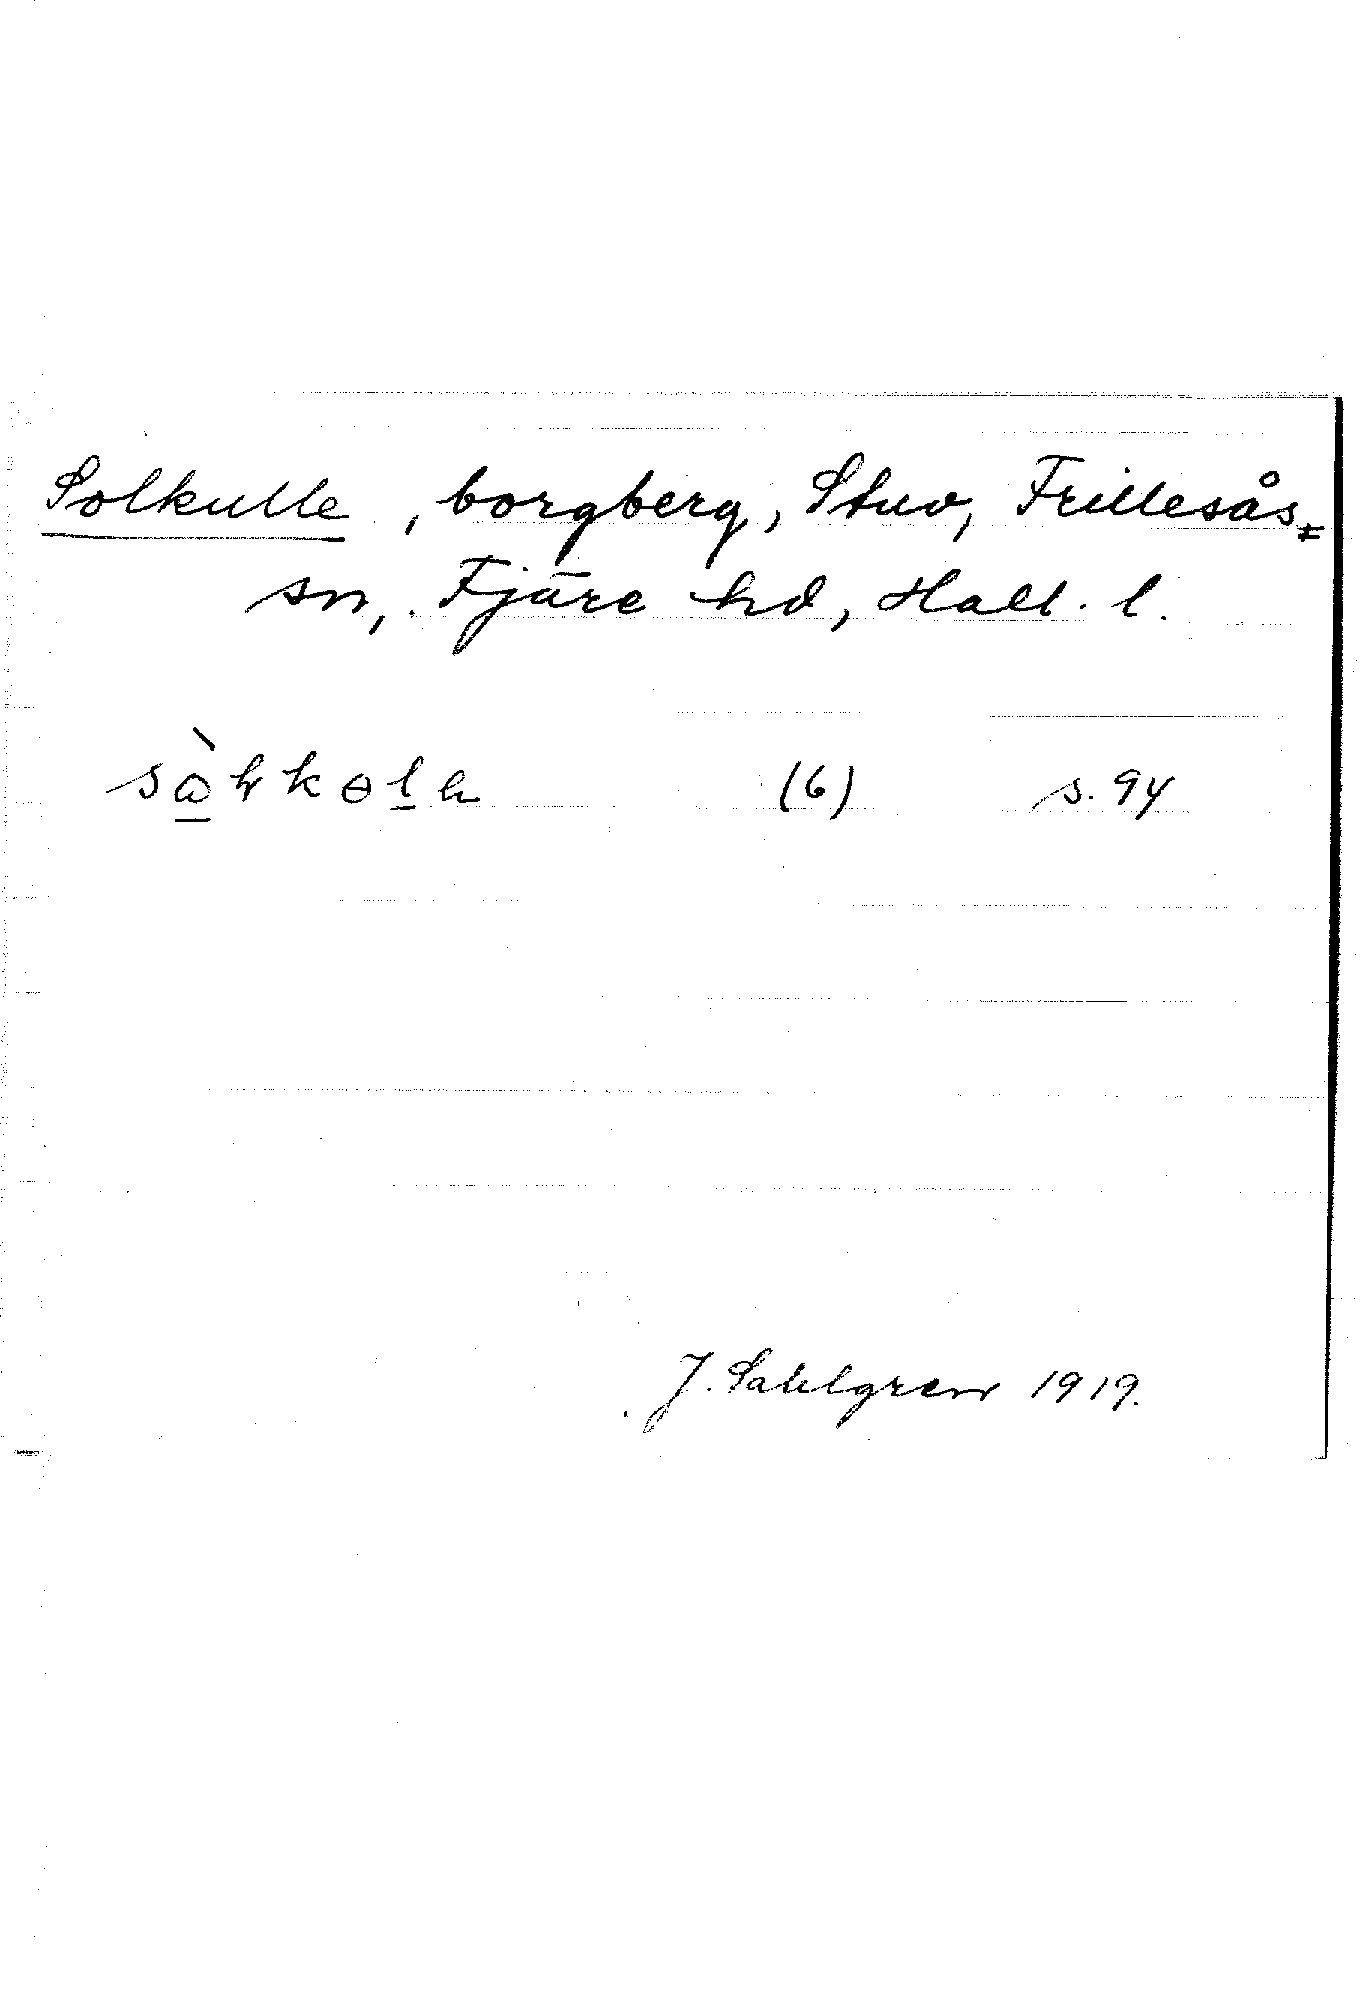 Solkulle, borgberg, Stuv, Frillesås=
sn, Fjäre hd, Hall. l.
(6) s. 94
J. Sahlgren 1919.